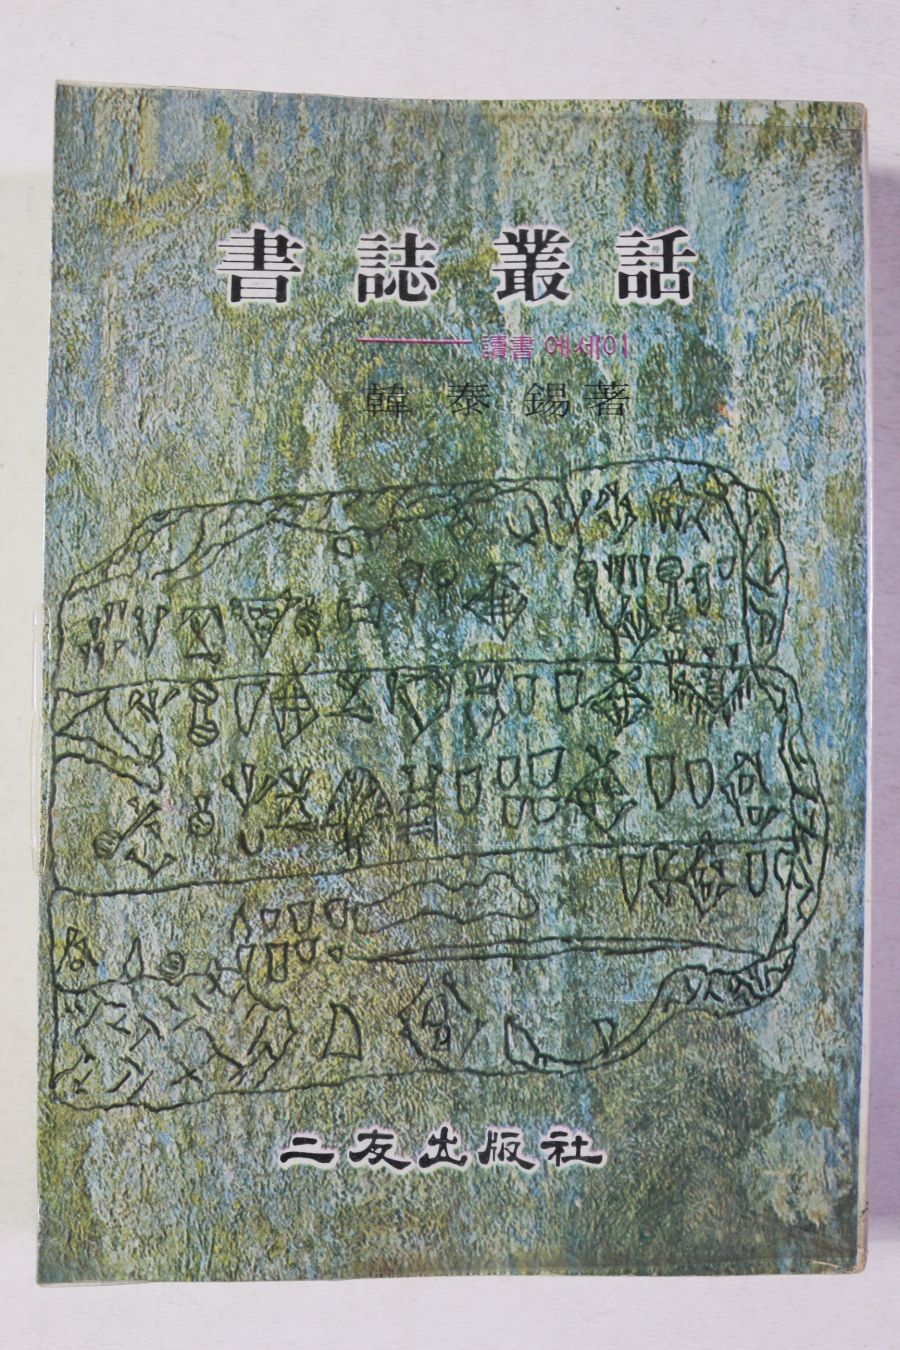 書誌叢話
讀書 에세이
韓泰錫著
二友出版社